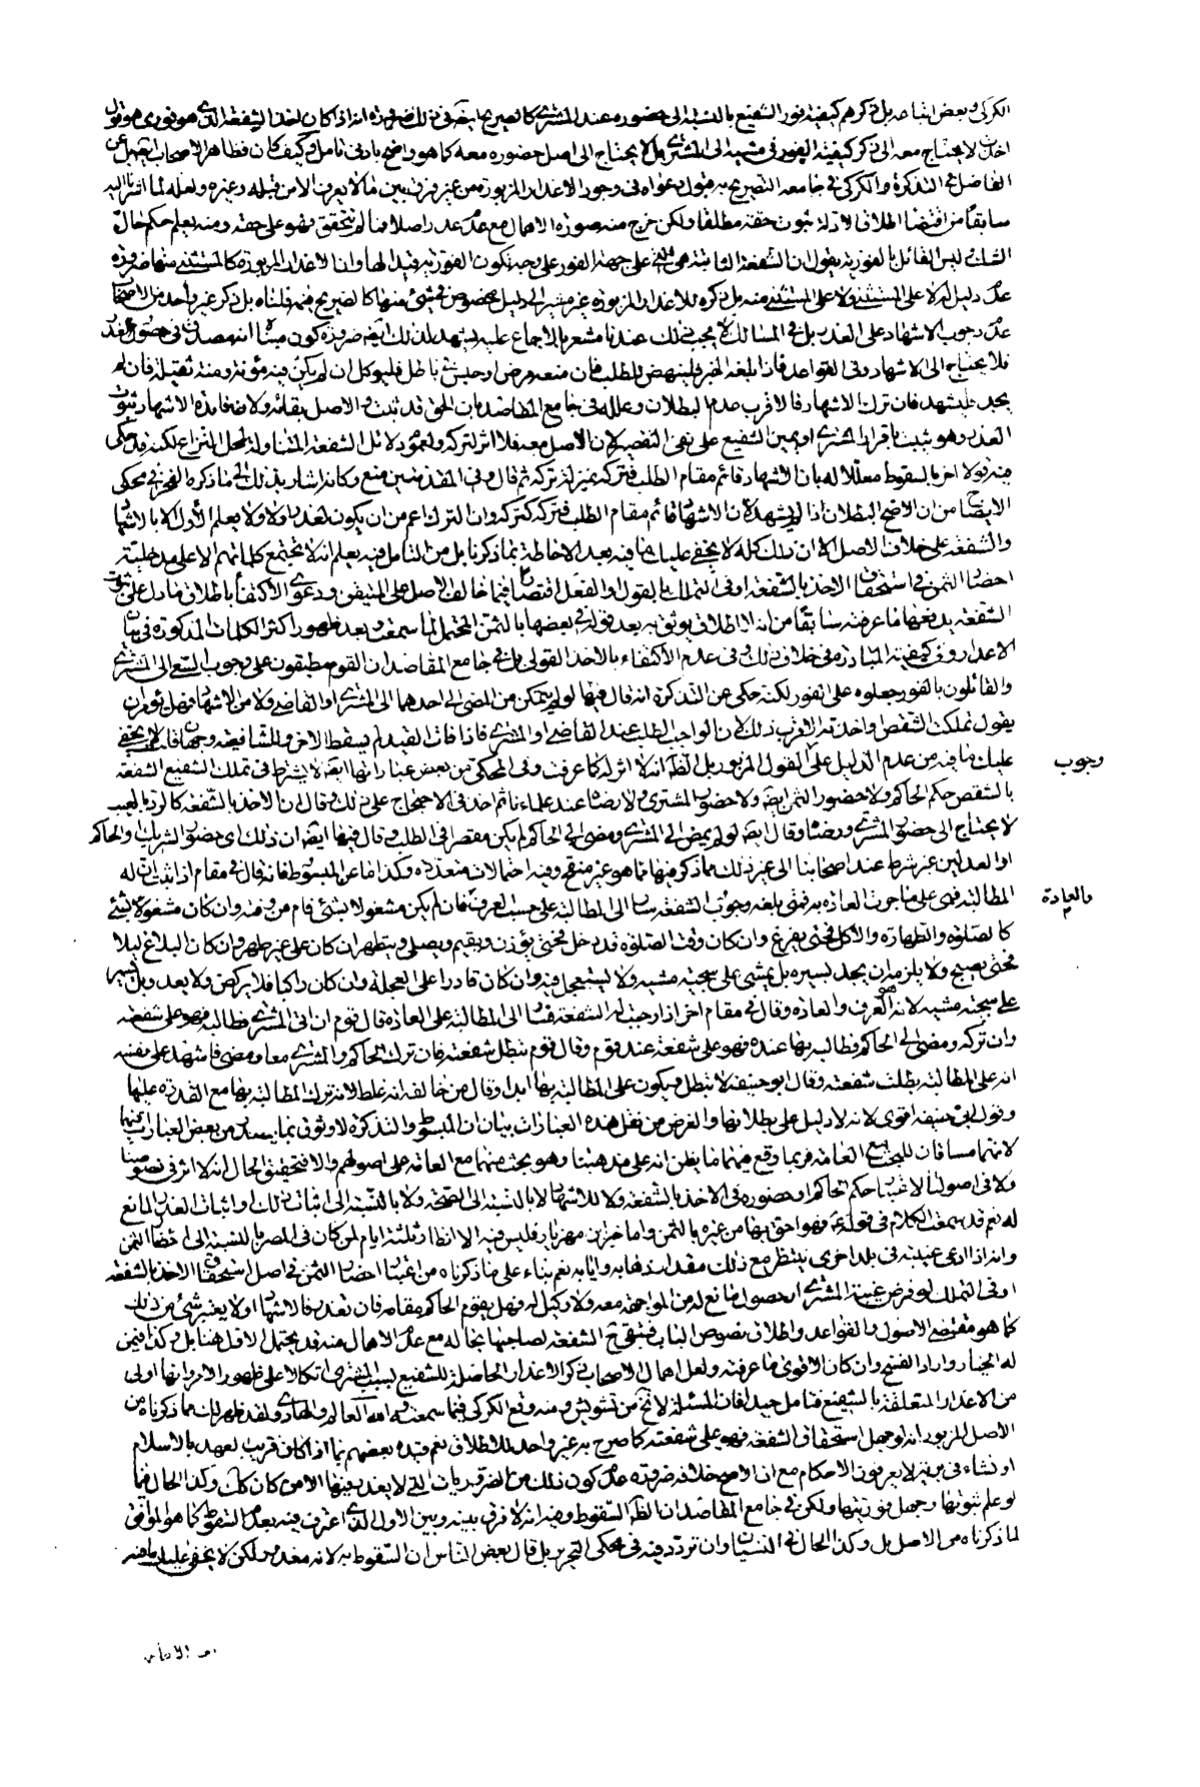 الكركي وبعض اتباعه بل ذكرهم كيفية فور الشفيع بالنسبة الى حضوره عند المشتري كالصريح ايضا في ذلك ضرورة انه اذا كان لاخذ الشفعة الذي هو فوري هو قول
اخذت لا يحتاج معه الى ذكر كيفية الفور في مشيه الى المشتري بل لا يحتاج الى اصل حضوره معه كما هو واضح بادنى تامل وكيف كان فظاهر الاصحاب بل عن
الفاضل في التذكرة والكركي في جامعه التصريح به قبول دعواه في وجود الاعذار المزبورة من غير فرق بين ما لا يعرف الا من قبله وغيره ولعله لما اشرنا اليه
سابقا من اقتضاء اطلاق الادلة ثبوت حقه مطلقا ولكن خرج منه صورة الاهمال مع عدم عذر اصلا فما لم يتحقق فهو على حقه ومنه يعلم حكم حال
الشك ليس القائل بالفورية يقول ان الشفعة الثابتة هي على جهة الفور على وجه يكون الفورية قيدا لها وان الاعذار المزبورة كالمستثنى منها ضرورة
عدم دليل له لا على المستثنى ولا على المستثنى منه بل ذكره للاعذار المزبورة غير مشير الى دليل مخصوص في شيء منها كالصريح فيما قلناه بل ذكر غير واحد من الاصحاب
عدم وجوب الاشهاد على العذر بل في المسالك لا يجب ذلك عندنا مشعرا بالاجماع عليه يشهد لذلك ايضا ضرورة كون مبناه انه مصدق في حصول العذر
فلا يحتاج الى الاشهاد وفي القواعد فاذا بلغه الخبر فلينهض للطلب فان منعه مرض او حبس في باطل فليوكل ان لم يكن فيه مؤنة ومنة ثقيلة فان لم
يجد فليشهد فان ترك الاشهاد فالاقرب عدم البطلان وعلله في جامع المقاصد بان الحق قد ثبت والاصل بقائه ولان فائدة الاشهاد ثبوت
العذر وهو يثبت باقرار المشتري او يمين الشفيع على نفي التقصير لان الاصل معه فلا اثر لتركه ولعموم دلائل الشفعة المتناولة لمحل النزاع لكنه قد حكى
فيه قولا اخر بالسقوط معللا له بان الاشهاد قائم مقام الطلب فتركه بمنزلة تركه ثم قال وفي المقدمتين منع وكانه اشار بذلك الى ما ذكره الفخر في محكي
الايضاح من ان الاصح البطلان اذا لم يشهد لان الاشهاد قائم مقام الطلب فتركه كتركه وان الترك اعم من ان يكون لعذر او لا ولا يعلم الاول الا بالاشهاد
والشفعة على خلاف الاصل الا ان ذلك كله لا يخفى عليك ما فيه بعد الاحاطة بما ذكرنا بل من التامل فيه يعلم انه لا تجتمع كلماتهم الا على مدخلية
احضار الثمن في استحقاق الاخذ بالشفعة او في التملك بها بالقول او الفعل اقتصارا فيما خالف الاصل على المتيقن ودعوى الاكتفاء باطلاق ما دل على ثبوت
الشفعة يدفعها ما عرفته سابقا من انه لا اطلاق يوثق به بعد قوله في بعضها بالثمن المحتمل لما سمعت وبعد ظهور اكثر الكلمات المذكورة في بيان
الاعذار وفي كيفية المبادرة في خلاف ذلك وفي عدم الاكتفاء بالاخذ القولي بل في جامع المقاصد ان القوم مطبقون على وجوب السعي الى المشتري
والقائلون بالفور جعلوه على الفور لكنه حكى عن التذكرة انه قال فيها لو لم يتمكن من المضي الى احدهما الى المشتري او القاضي ولا من الاشهاد فهل يؤمر ان
يقول تملكت الشقص واخذته الاقرب ذلك لان الواجب الطلب عند القاضي او المشتري فاذا فات القيد لم يسقط الاخر وللشافعية وجهان لا يخفى
عليك ما فيه من عدم الدليل على القول المزبور بل الظاهر انه لا اثر له كما عرفت وفي المحكي من بعض عباراتها ايضا لا يشترط في تملك الشفيع الشفعة
وجوب
بالشقص حكم الحاكم ولا حضور الثمن ايضا ولا حضور المشتري ولا رضاه عند علماءنا ثم اخذ في الاحتجاج على ذلك وقال ان الاخذ بالشفعة كالرد بالعيب
لا يحتاج الى حضور المشتري ورضاه وقال ايضا لو لم يمض الى المشتري ومضى الى الحاكم لم يكن مقصرا في الطلب وقال فيها ايضا ان ذلك اي حضور الشريك والحاكم
او العدلين غير شرط عند اصحابنا الى غير ذلك مما ذكر فيها مما هو غير منقح وفيه احتمالات متعددة وكذا ما عن المبسوط فانه قال في مقام اذا ثبت ان له
المطالبة فهي على ما جرت العادة به فمتى بلغه وجوب الشفعة سار الى المطالبة على حسب العرف فان لم يكن مشغولا بشيء قام من وقته وان كان مشغولا بشيء
والعادة
كالصلوة والطهارة والاكل فحتى يفرغ وان كان وقت الصلوة قد دخل فحتى يؤذن ويقيم ويصلي ويتطهر ان كان على غير طهر وان كان البلاغ ليلا
فحتى يصبح ولا يلزمه ان يجد بسيره بل يمشي على سجية مشيه ولا يستعجل فيه وان كان قادرا على العجلة وان كان راكبا فلا يركض ولا يعد وبل يسير
على سجية مشيه لانه هو العرف والعادة وقال في مقام اخر اذا وجبت له الشفعة فسار الى المطالبة على العادة قال قوم ان اتى المشتري فطالبه فهو على شفعته
وان تركه ومضى الى الحاكم فطالبه بها عنده فهو على شفعته عند قوم وقال قوم تبطل شفعته فان ترك الحاكم والمشتري معا ومضى فاشهد على نفسه
انه على المطالبة بطلت شفعته وقال ابو حنيفة لا تبطل ويكون على المطالبة بها ابدا وقال من خالفه انه غلط لانه ترك المطالبة بها مع القدرة عليها
وقول ابي حنيفة اقوى لانه لا دليل على بطلانها والغرض من نقل هذه العبارات بيان ان المبسوط والتذكرة لا وثوق بما يستدل من بعض العبارات فيهما
لانهما مساقان للبحث مع العامة فربما وقع فيهما ما يظن انه على مذهبنا وهو بحث منهما مع العامة على اصولهم والا فتحقيق الحال انه لا اثر في نصوصنا
ولا في اصولنا لاعتبار حكم الحاكم او حضوره في الاخذ بالشفعة ولا للاشهاد لا بالنسبة الى الصحة ولا بالنسبة الى اثبات ذلك او اثبات العذر المانع
له نعم قد سمعت الكلام في قوله فهو احق بها من غيره بالثمن واما خبر ابن مهزيار فليس فيه الا انظار ثلثة ايام لمن كان في المصر بالنسبة الى احضار الثمن
وانه اذا ادعى غيبته في بلد اخرى ينتظر مع ذلك مقدار ذهابه وايابه نعم بناء على ما ذكرناه من اعتبار احضار الثمن في اصل استحقاق الاخذ بالشفعة
او في التملك لو فرض غيبة المشتري او حصول مانع له من المواجهة معه ولا وكيل له فهل يقوم الحاكم مقامه فان تعذر فالاشهاد او لا يعتبر شيء من ذلك
كما هو مقتضى الاصول والقواعد واطلاق نصوص الباب فتبقى الشفعة لصاحبها بحاله مع عدم الاهمال منه قد يحتمل الاول هنا بل وكذا فيمن
له الخيار واراد الفسخ وان كان الاقوى ما عرفته ولعل اهمال الاصحاب ذكر الاعذار الحاصلة للشفيع بسبب المشتري اتكالا على ظهور الامر وانها اولى
من الاعذار المتعلقة بالشفيع فتامل جيدا فان المسئلة لا تخ من تشويش ومنه وقع الكركي فيما سمعت والله العالم والهادي ولقد ظهر لك مما ذكرناه من
الاصل المزبور انه لو جهل استحقاق الشفعة فهو على شفعته كما صرح به غير واحد للاطلاق نعم قيده بعضهم بما اذا كان قريب العهد بالاسلام
او نشاء في برية لا يعرفون الاحكام مع ان الاصح خلافه ضرورة عدم كون ذلك من الضروريات التي لا يعذر فيها الا من كان كك وكذا الحال فيما
لو علم ثبوتها وجهل فوريتها ولكن في جامع المقاصد ان الظاهر السقوط وفيه انه لا فرق بينه وبين الاول الذي اعترف فيه بعدم السقوط كما هو الموافق
لما ذكرناه من الاصل بل وكذا الحال في النسيان وان تردد فيه في محكي التحرير بل قال بعض الناس ان السقوط به لانه معذور ولكن لا يخفى عليك ما فيه